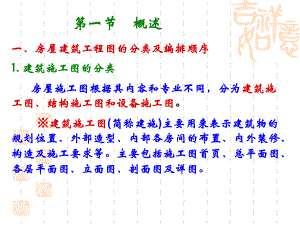 第一节　概述
一、房屋建筑工程图的分类及编排顺序
1.建筑施工图的分类
房屋施工图根据其内容和专业不同，分为建筑施
工图、结构施工图和设备施工图。
※建筑施工图(简称建施)主要用来表示建筑物的
规划位置、外部造型、内部各房间的布置、内外装修、
构造及施工要求等。主要包括施工图首页、总平面图、
各层平面图、立面图、剖面图及详图。